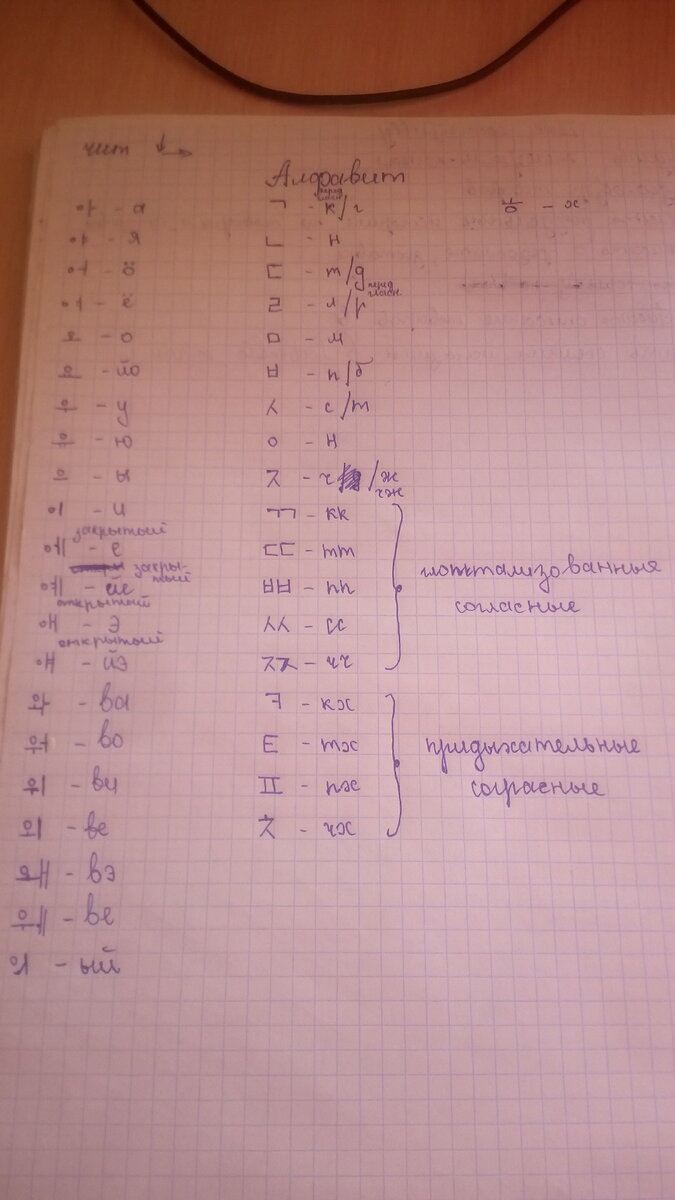 чит ↓→
Алфавит
아 - а
야 - я
어 - ö
여 - ё
오 - о
요 - йо
우 - у
유 - ю
으 - ы
이 - и
закрытый
에 - е
закры-
тый
예 - йе
открытый
애 - э
открытый
얘 - йэ
와 - ва
워 - во
위 - ви
외 - ве
왜 - вэ
웨 - ве
의 - ый
перед гласн
ㄱ - к/г
ㄴ - н
ㄷ - т/д
перед гласн.
ㄹ - л/р
ㅁ - м
ㅂ - п/б
ㅅ - с/т
ㅇ - н
ㅈ - ч /ж
чж
ㄲ - кк
ㄸ - тт
ㅃ - пп
ㅆ - сс
ㅉ - чч
глоттализованные
согласные
ㅋ - кх
ㅌ - тх
ㅍ - пх
ㅊ - чх
придыхательные
согласные
ㅎ - х